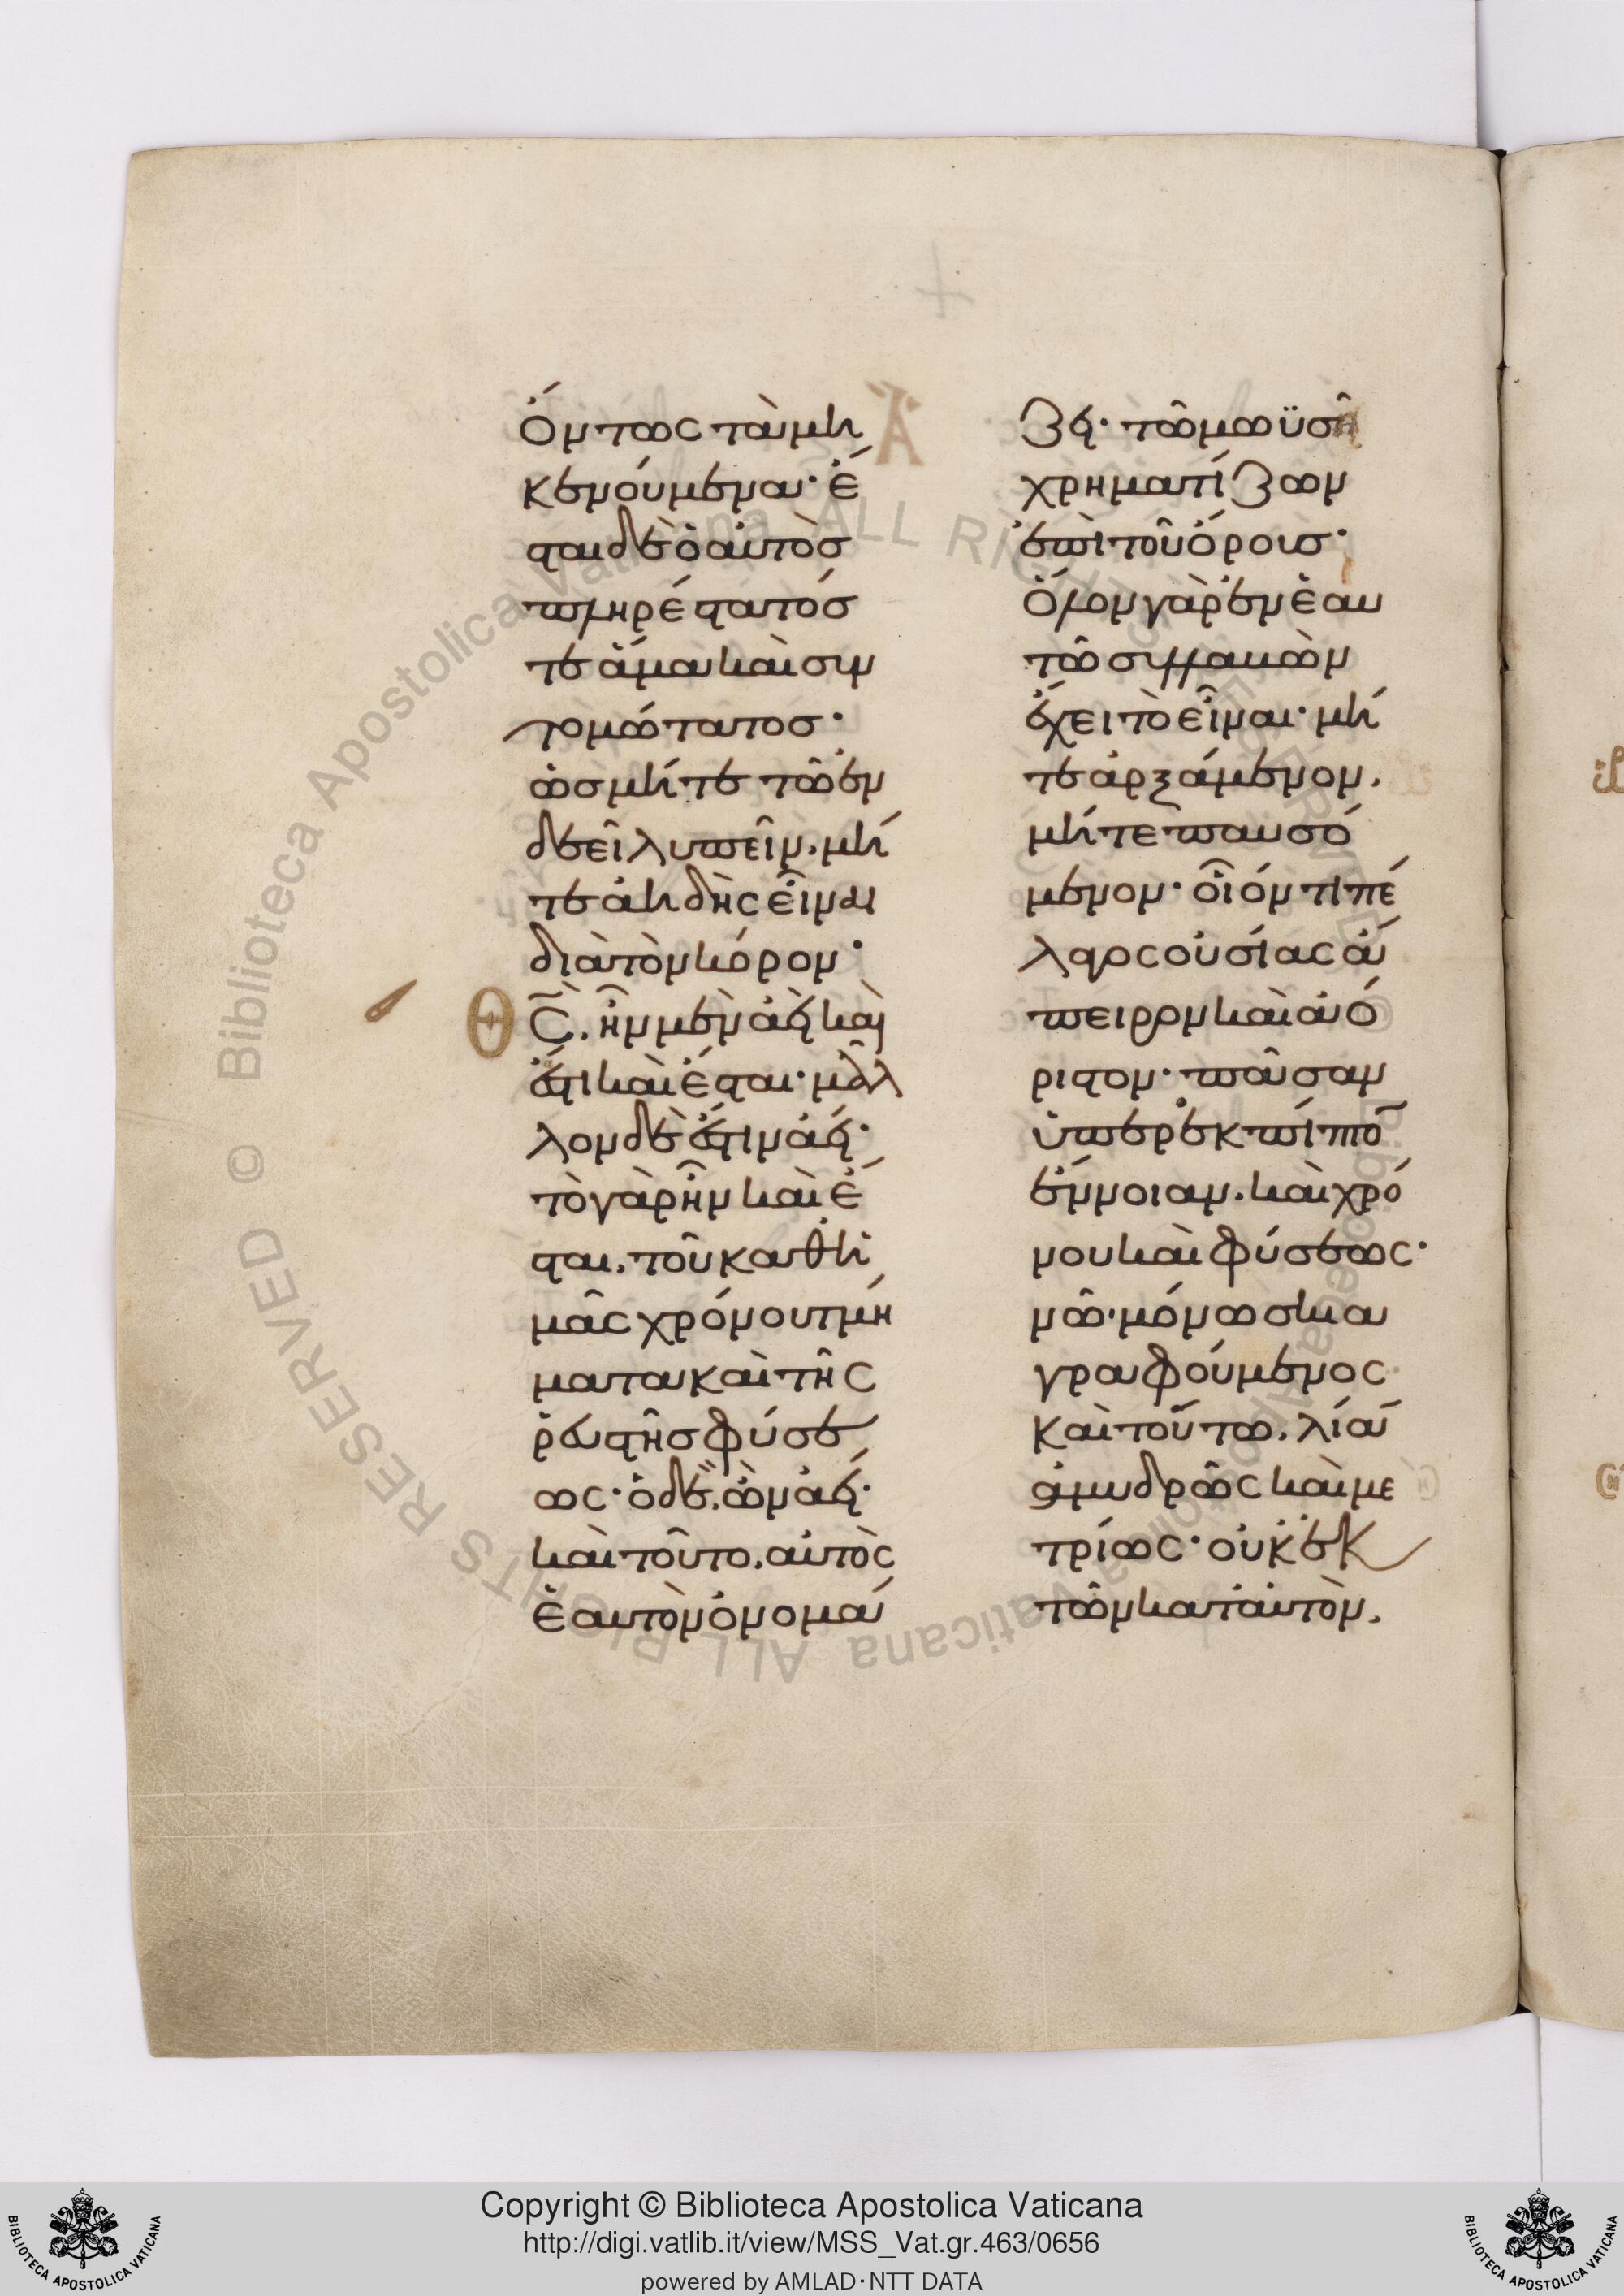 ὄντως τὰ μη
κυνούμενα· ἔ
σται δὲ ὁ αὐτὸσ
πληρέστατόσ
τε ἅμα καὶ συν
τομώτατοσ·
ὡσ μήτε τῶ ἐν
δεεῖ λυπεῖν. μή
τε ἀηδὴς εἶναι
διὰ τὸν κόρον·
Θ̅Σ̅. ἦν μὲν ἀεὶ καὶ
ἔστι καὶ ἔσται· μᾶλ
λον δὲ ἔστιν ἀεί·
τὸ γὰρ ἦν καὶ ἔ
σται. τοῦ καθ ἡ
μᾶς χρόνου τμή
ματα καὶ τῆς
ῥευστῆσ φύσε
ως· ὁ δὲ. ὢν ἀεί·
καὶ τοῦτο. αὐτὸς
ἑαυτὸν ὀνομά
ζει· τῶ μωϋσῆ
χρηματίζων
ἐπὶ τοῦ ὄρουσ·
ὅλον γὰρ ἐν ἑαυ
τῶ συλλαβὼν
ἔχει τὸ εἶναι· μή
τε ἀρξάμενον.
μήτε παυσό
μενον· οἷόν τι πέ
λαγος οὐσίας ἄ
πειρον καὶ ἀό
ριστον· πᾶσαν
ὑπερεκπίπτον
ἔννοιαν. καὶ χρό
νου καὶ φύσεως·
νῶ· μόνω σκια
γραφούμενος
καὶ τούτω. λίαν
ἀμυδρῶς καὶ με
τρίως· οὐκ ἐκ
τῶν κατ αὐτὸν.
Copyright © Biblioteca Apostolica Vaticana
http://digi.vatlib.it/view/MSS_Vat.gr.463/0656
powered by AMLAD·NTT DATA